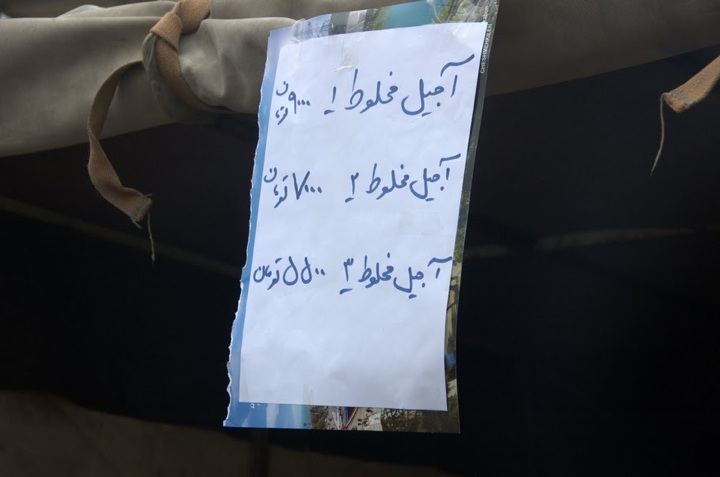 آجیل مخلوط ۱ ۹۰۰۰ تومان
آجیل مخلوط ۲ ۷۰۰۰ تومان
آجیل مخلوط ۳ ۵۵۰۰ تومان